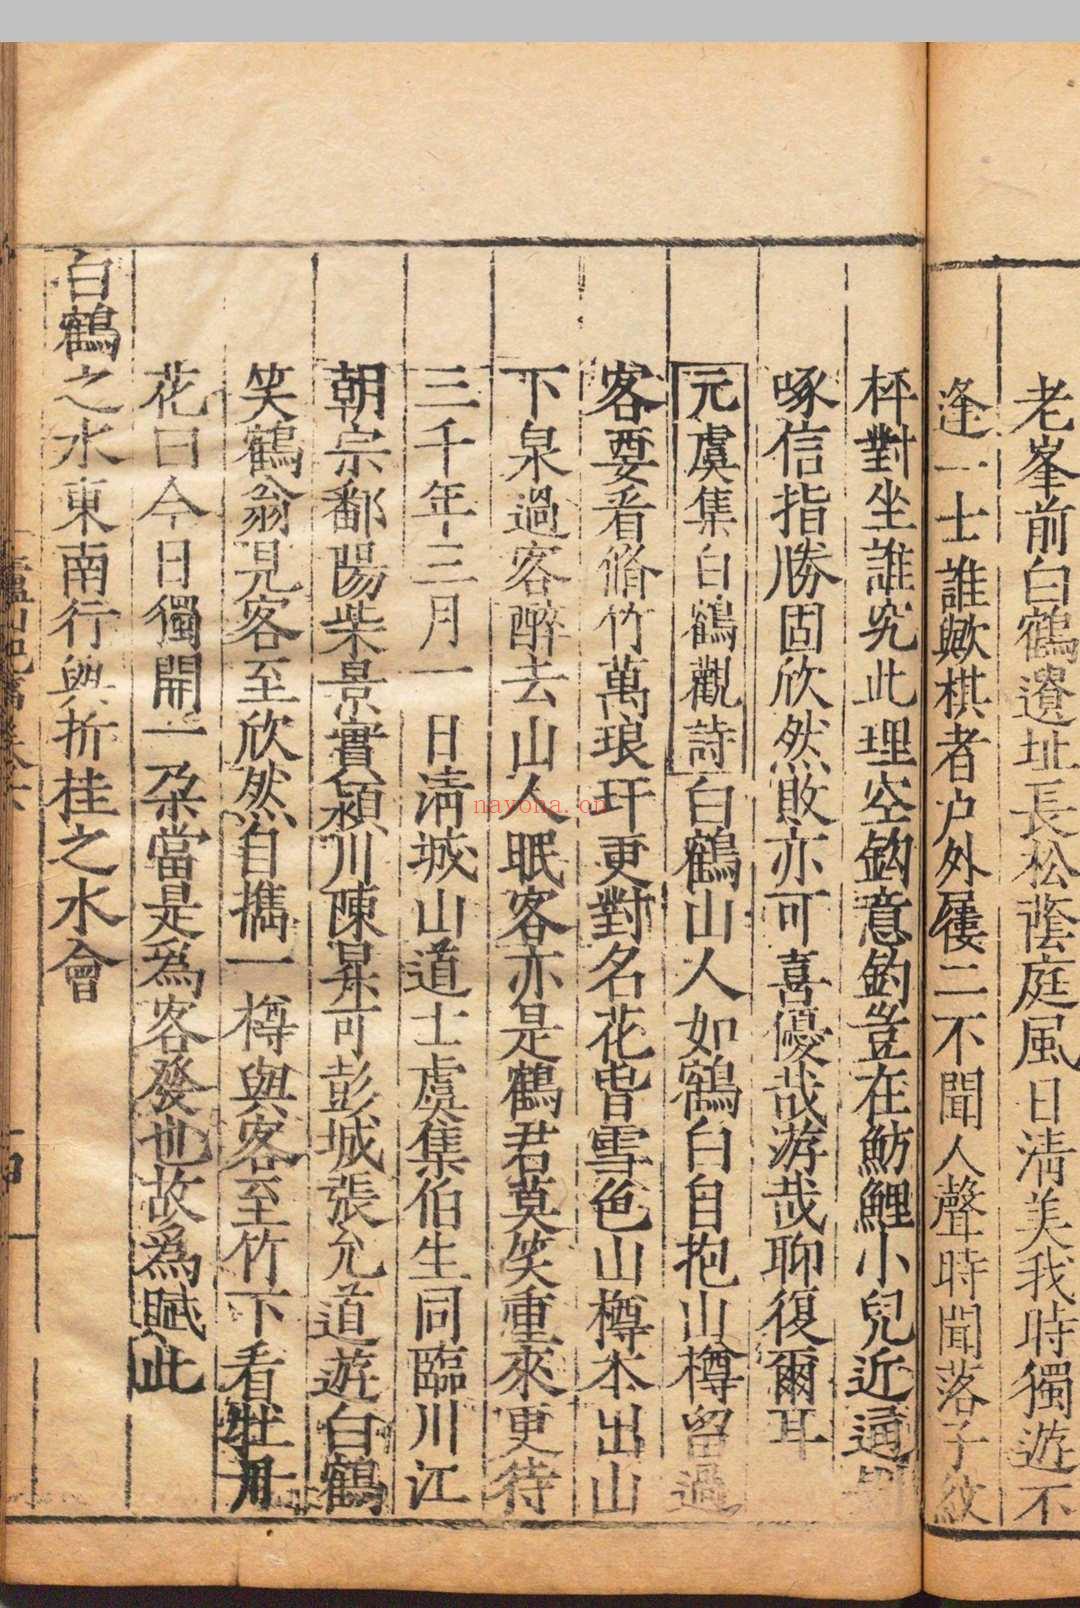 老峯前白鶴遺址長松蔭庭風日清美我時獨遊不
逢一士誰歟棋者户外屨二不聞人聲時聞落子紋
枰對坐誰究此理空鈎意釣豈在魴鯉小兒近道剝
啄信指勝固欣然敗亦可喜優哉游哉聊復爾耳
元虞集白鶴觀詩白鶴山人如鶴白自抱山樽留過
客要看脩竹萬琅玕更對名花皆雪色山樽本出山
下泉過客醉去山人眠客亦是鶴君莫笑重來更待
三千年三月一日清城山道士虞集伯生同臨川江
朝宗鄱陽柴景實潁川陳昇可彭城張允道遊白鶴
笑鶴翁見客至欣然自攜一樽與客至竹下看牡丹
花曰今日獨開一朵當是爲客發也故爲賦此
白鶴之水東南行與折桂之水會
廬山紀事卷六
十四
nayona.cn